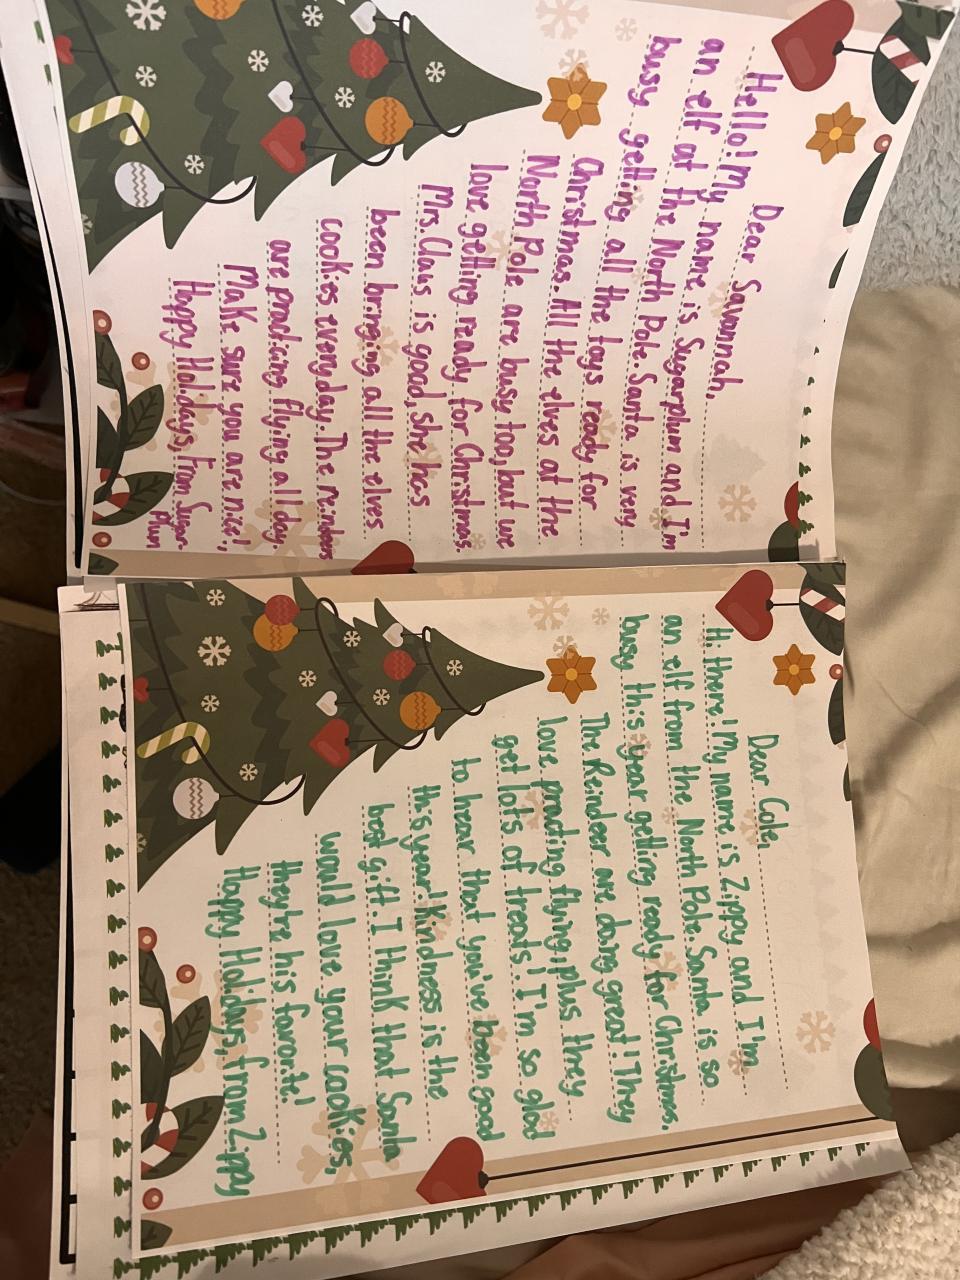 Dear Savannah,
Hello! My name is Sugarplum and I'm
an elf at the North Pole. Santa is very
busy getting all the toys ready for
Christmas. All the elves at the
North Pole are busy too, but we
love getting ready for Christmas.
Mrs. Claus is good, she has
been bringing all the elves
cookies everyday. The reindeers
are practicing flying all day.
Make sure you are nice!,
Happy Holidays, From Sugar-
Plum
Dear Cole,
Hi there! My name is Zippy and I'm
an elf from the North Pole. Santa is so
busy this year getting ready for Christmas.
The Reindeer are doing great! They
love practing flying, plus they
get lots of treats! I'm so glad
to hear that you've been good
this year. Kindness is the
best gift. I think that Santa
would love your cookies,
they're his favorite!
Happy Holidays, from Zippy